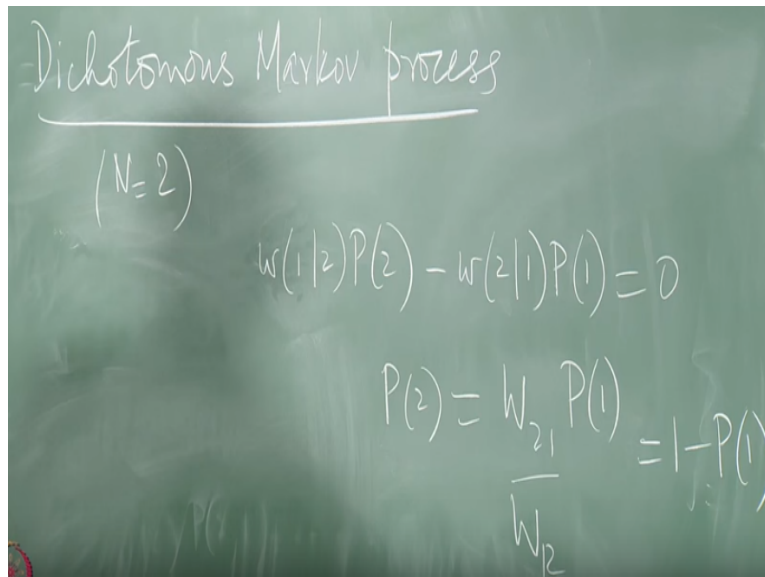 Dichotomous Markov process
(N=2)
w(1|2)P(2) - w(2|1)P(1) = 0
P(2) = W₂₁/W₁₂ P(1) = 1-P(1)